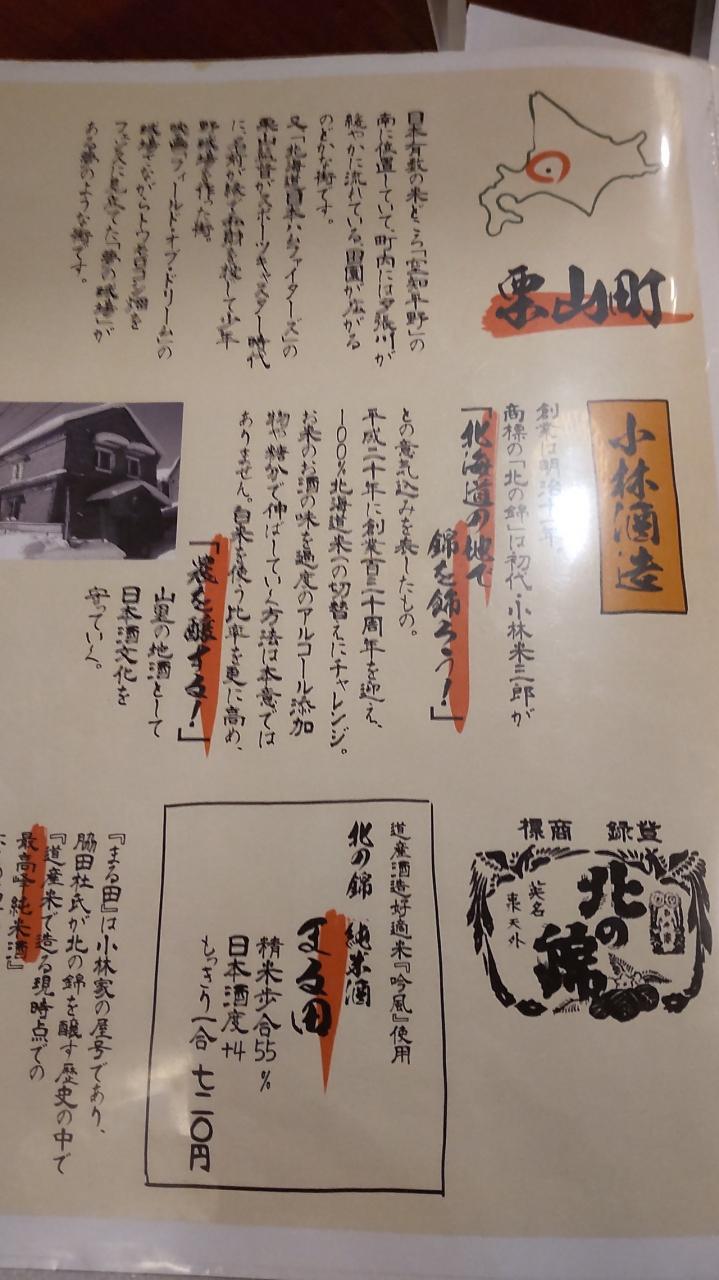 栗山町
日本有数の米どころ「空知平野」の
南に位置していて、町内には夕張川が
緩やかに流れている、田園が広がる
のどかな街です。
又「北海道日本ハムファイターズ」の
栗山監督がスポーツキャスター時代
に、名前が縁で私財を投じて少年
野球場を作った街。
映画「フィールド・オブ・ドリーム」の
球場さながらトウモロコシ畑を
フェンスに見立てた「夢の球場」が
ある夢のような街です。
小林酒造
創業は明治十一年。
商標の「北の錦」は初代、小林米三郎が
「北海道の地で
錦を飾ろう！」
との意気込みを表したもの。
平成二十年に創業百三十周年を迎え、
一〇〇％北海道米への切替えにチャレンジ。
お米のお酒の味を過度のアルコール添加
物や精かで伸ばしていく方法は本意では
ありません。自米を使う比率を更に高め、
「農を醸する！」
山里の地酒として
日本酒文化を
守っていく。
登録 商標
北の錦
英名
東天外
道産酒造好適米『吟風』使用
北の錦 純米酒
まる田
精米歩合55％
日本酒度+4
もっきり一合 七二〇円
『まる田』は小林家の屋号であり、
脇田杜氏が北の錦を醸す歴史の中で
『道産米で造る現時点での
最高峰純米酒』